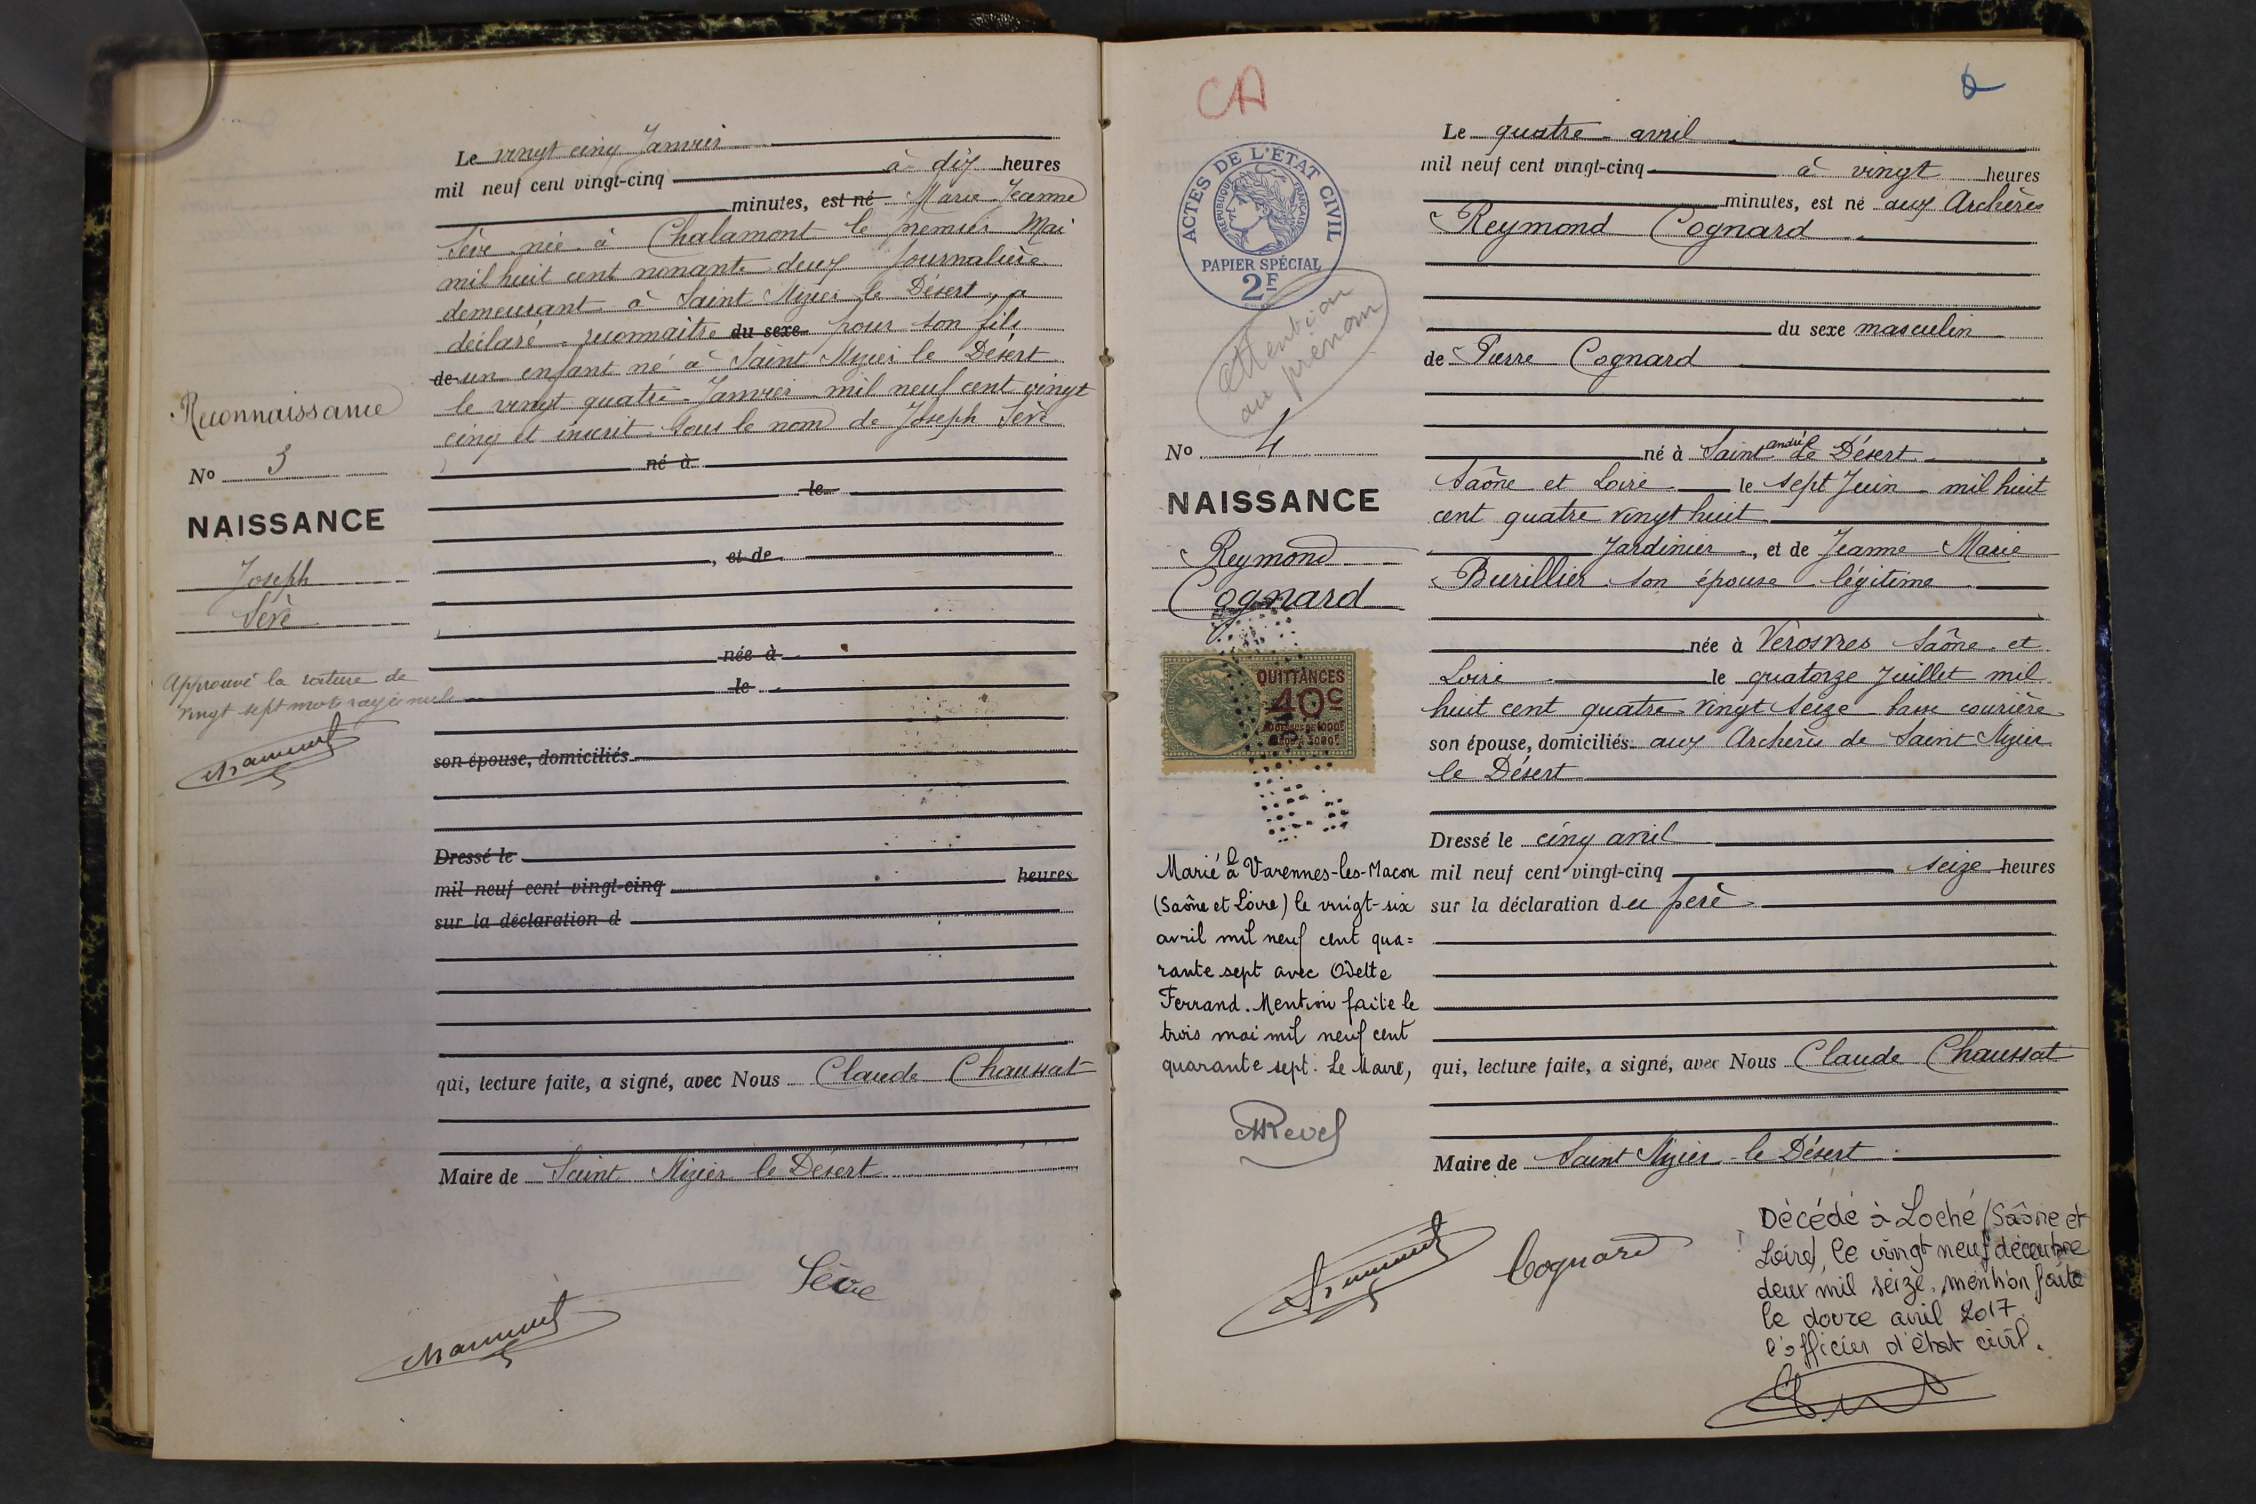 Le vingt cinq Janvier
mil neuf cent vingt-cinq à dix heures
minutes, est né Marie Jeanne
Sève née à Chalamont le premier Mai
mil huit cent nonante deux Journalière
demeurant à Saint Nizier le Désert, a
déclaré reconnaitre du sexe pour son fils
de un enfant né à Saint Nizier le Désert
le vingt quatre Janvier mil neuf cent vingt
cinq et inscrit sous le nom de Joseph Sève
né à
le
, et de
née à
le
son épouse, domiciliés
Dressé le
mil neuf cent vingt-cinq heures
sur la déclaration d
qui, lecture faite, a signé, avec Nous Claude Chaussat
Maire de Saint Nizier le Désert
Sève
Reconnaissance
No 3
NAISSANCE
Joseph
Sève
Approuvé la rature de
vingt sept mots rayés nuls
CA
ACTES DE L'ÉTAT CIVIL
RÉPUBLIQUE FRANÇAISE
PAPIER SPÉCIAL
2F
attention
au prénom
No 4
NAISSANCE
Reymond
Cognard
QUITTANCES
40c
Marié à Varennes-les-Macon
(Saône et Loire) le vingt-six
avril mil neuf cent qua=
rante sept avec Odette
Ferrand. Mention faite le
trois mai mil neuf cent
quarante sept. Le Maire,
Revel
Le quatre avril
mil neuf cent vingt-cinq à vingt heures
minutes, est né aux Archères
Reymond Cognard
du sexe masculin
de Pierre Cognard
né à Saint andré le Désert
Saône et Loire le sept Juin mil huit
cent quatre vingt huit
Jardinier, et de Jeanne Marie
Burillier son épouse légitime
née à Vérosvres Saône et
Loire le quatorze Juillet mil
huit cent quatre vingt seize basse courière
son épouse, domiciliés aux Archères de Saint Nizier
le Désert
Dressé le cinq avril
mil neuf cent vingt-cinq seize heures
sur la déclaration du père
qui, lecture faite, a signé, avec Nous Claude Chaussat
Maire de Saint Nizier le Désert
Cognard
Décédé à Loché (Saône et
Loire), le vingt neuf décembre
deux mil seize, mention faite
le douze avril 2017
l'officier d'état civil.